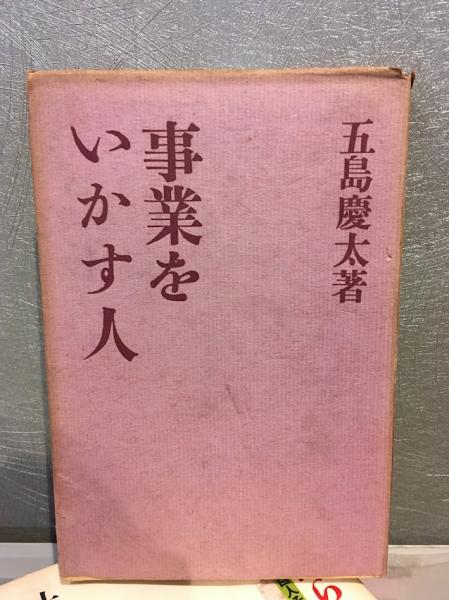 五島慶太著
事業を
いかす人